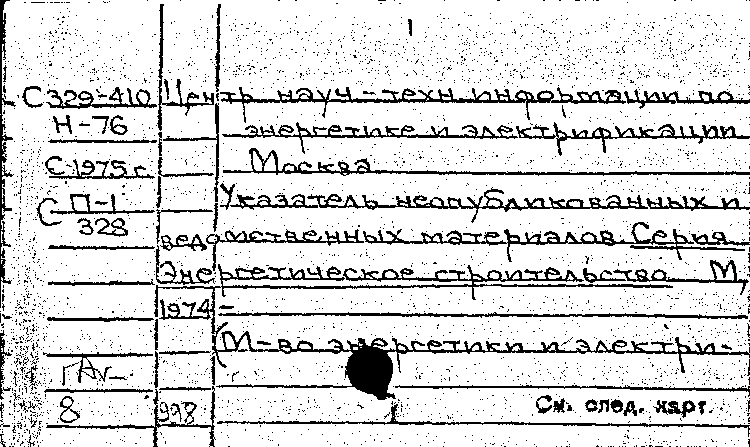 1
С329-410 Центр науч-техн. информации по
Н-76 энергетике и электрификации
С.1975 г. Москва
С П-1 Указатель неопубликованных и
328 ведомственных материалов. Серия
Энергетическое строительство М,
1974 -
(М-во энергетики и электри-
8 998 1 См. след. карт.